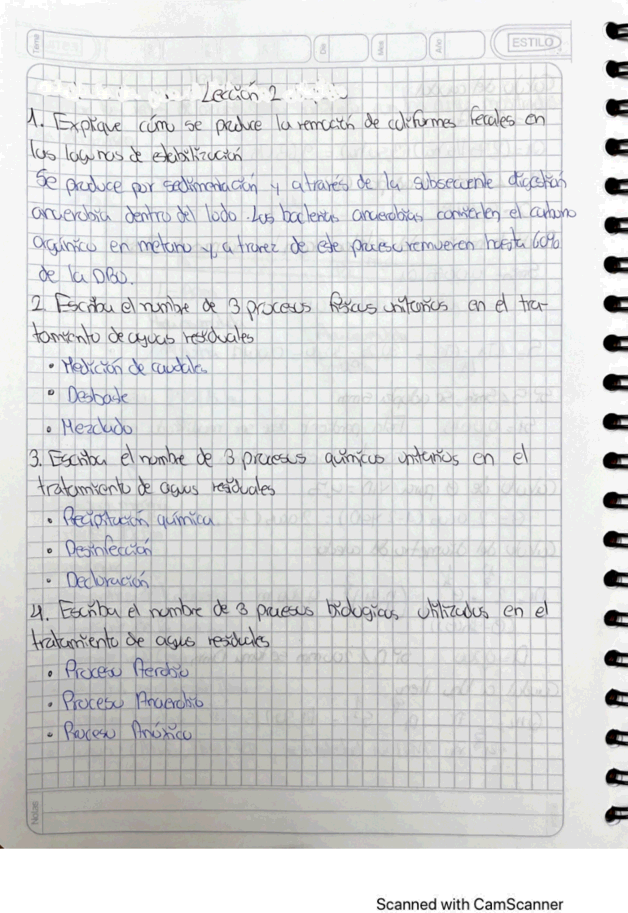 Tema
Día
Mes
Año
ESTILO
Lección 2
1. Explique cómo se produce la remoción de coliformes fecales en
las lagunas de estabilización
Se produce por sedimentación y a través de la subsecuente digestión
anaerobia dentro del lodo. Las bacterias anaerobias convierten el carbono
orgánico en metano y a travez de este proceso remueven hasta 60%
de la DBO.
2. Escriba el nombre de 3 procesos físicos unitarios en el tra-
tamiento de aguas residuales
• Medición de caudales
• Desbaste
• Mezclado
3. Escriba el nombre de 3 procesos químicos unitarios en el
tratamiento de aguas residuales
• Precipitación química
• Desinfección
• Decloración
4. Escriba el nombre de 3 procesos biologicos utilizados en el
tratamiento de aguas residuales
• Proceso Aerobio
• Proceso Anaerobio
• Proceso Anóxico
Notas
Scanned with CamScanner